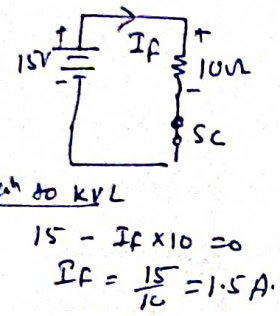 + If +
15V 10Ω
- -
SC
to KVL
15 - If × 10 = 0
If = 15/10 = 1.5 A.